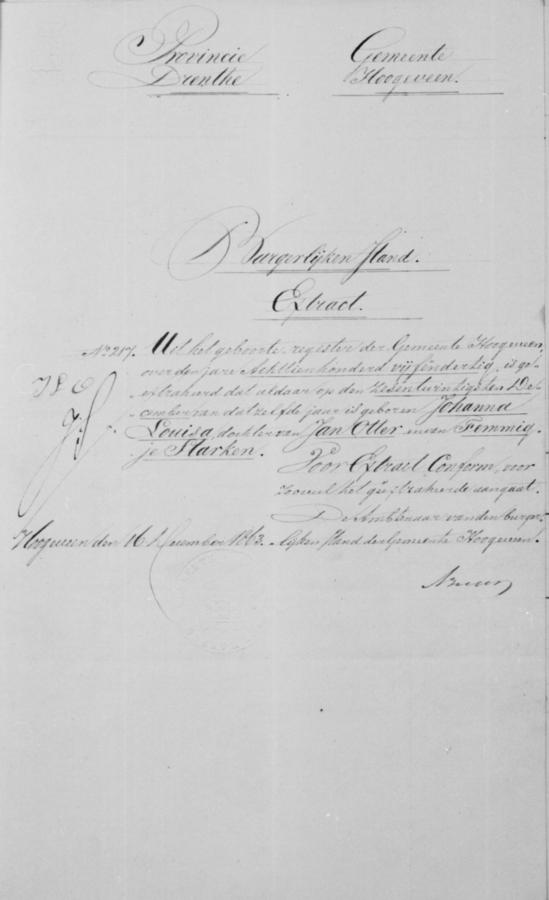 Provincie Gemeente
Drenthe Hoogeveen.
Burgerlijken Stand.
Extract.
No 217. Uit het geboorte register der Gemeente Hoogeveen
over den jare Achttienhonderd vijfendertig, is ge-
extraheerd dat aldaar op den zesentwintigsten De-
cember van dat zelfde jaar is geboren Johanna
Louisa, dochter van Jan Otter en van Femmig-
je Starken.
Voor Extract Conform, voor
zooveel het geëxtraheerde aangaat.
De Ambtenaar van den burger-
Hoogeveen den 16 December 1863. lijken stand der Gemeente Hoogeveen.